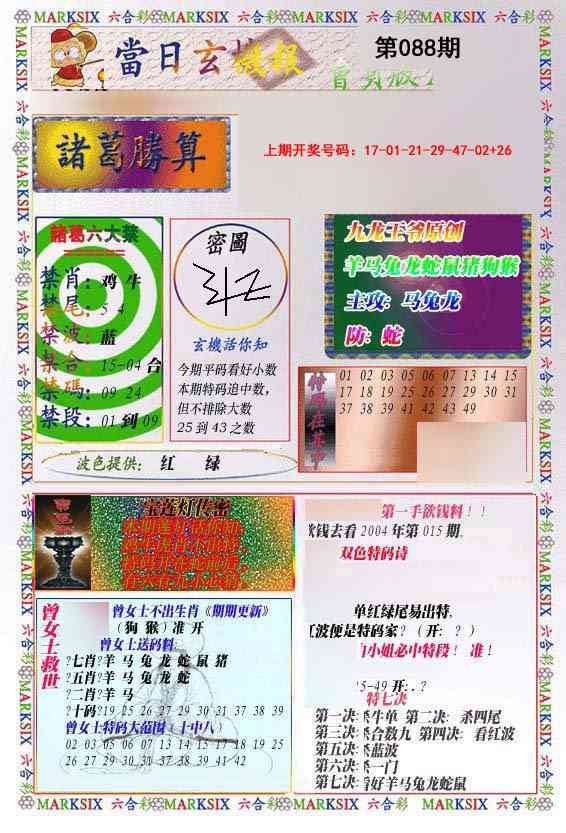 MARKSIX 六合彩 MARKSIX 六合彩 MARKSIX 六合彩 MARKSIX 六合彩
當日玄机
微报
第088期
諸葛勝算
上期开奖号码：17-01-21-29-47-02+26
諸葛六大禁
禁肖：鸡 牛
禁尾：5 4
禁波：蓝
禁合：15-04 合
禁碼：09 24
禁段：01 到 09
密圖
玄機活你知
今期平码看好小数
本期特码追中数，
但不排除大数
25 到 43 之数
九龙王爷原创
羊马兔龙蛇鼠猪狗猴
主攻：马兔龙
防：蛇
特码在其中
01 02 03 05 06 07 13 14 15
17 18 19 25 26 27 29 30 31
37 38 39 41 42 43 49
波色提供： 红 绿
宝莲灯传密
第一手欲钱料！！
欲钱去看 2004 年第 015 期。
双色特码诗
单红绿尾易出特，
红波便是特码家？（开：？）
小姐必中特段！ 准！
5-49 开：.？
特七决
第一决：杀牛单 第二决： 杀四尾
第三决：杀合数九 第四决： 看红波
第五决：杀蓝波
第六决：杀一门
第七决：看好羊马兔龙蛇鼠
曾女士救世
曾女士不出生肖《期期更新》
（狗 猴）准 开
曾女士送码料：
?七肖?羊 马 兔 龙 蛇 鼠 猪
?五肖?羊 马 兔 龙 蛇
?二肖?羊 马
?十码?19 25 26 27 29 30 31 37 38 39
曾女士特码大范围（十中八）
02 03 05 06 07 13 14 15 17 18 19 25
26 27 29 30 31 37 38 39 41 42
MARKSIX 六合彩 MARKSIX 六合彩 MARKSIX 六合彩 MARKSIX 六合彩